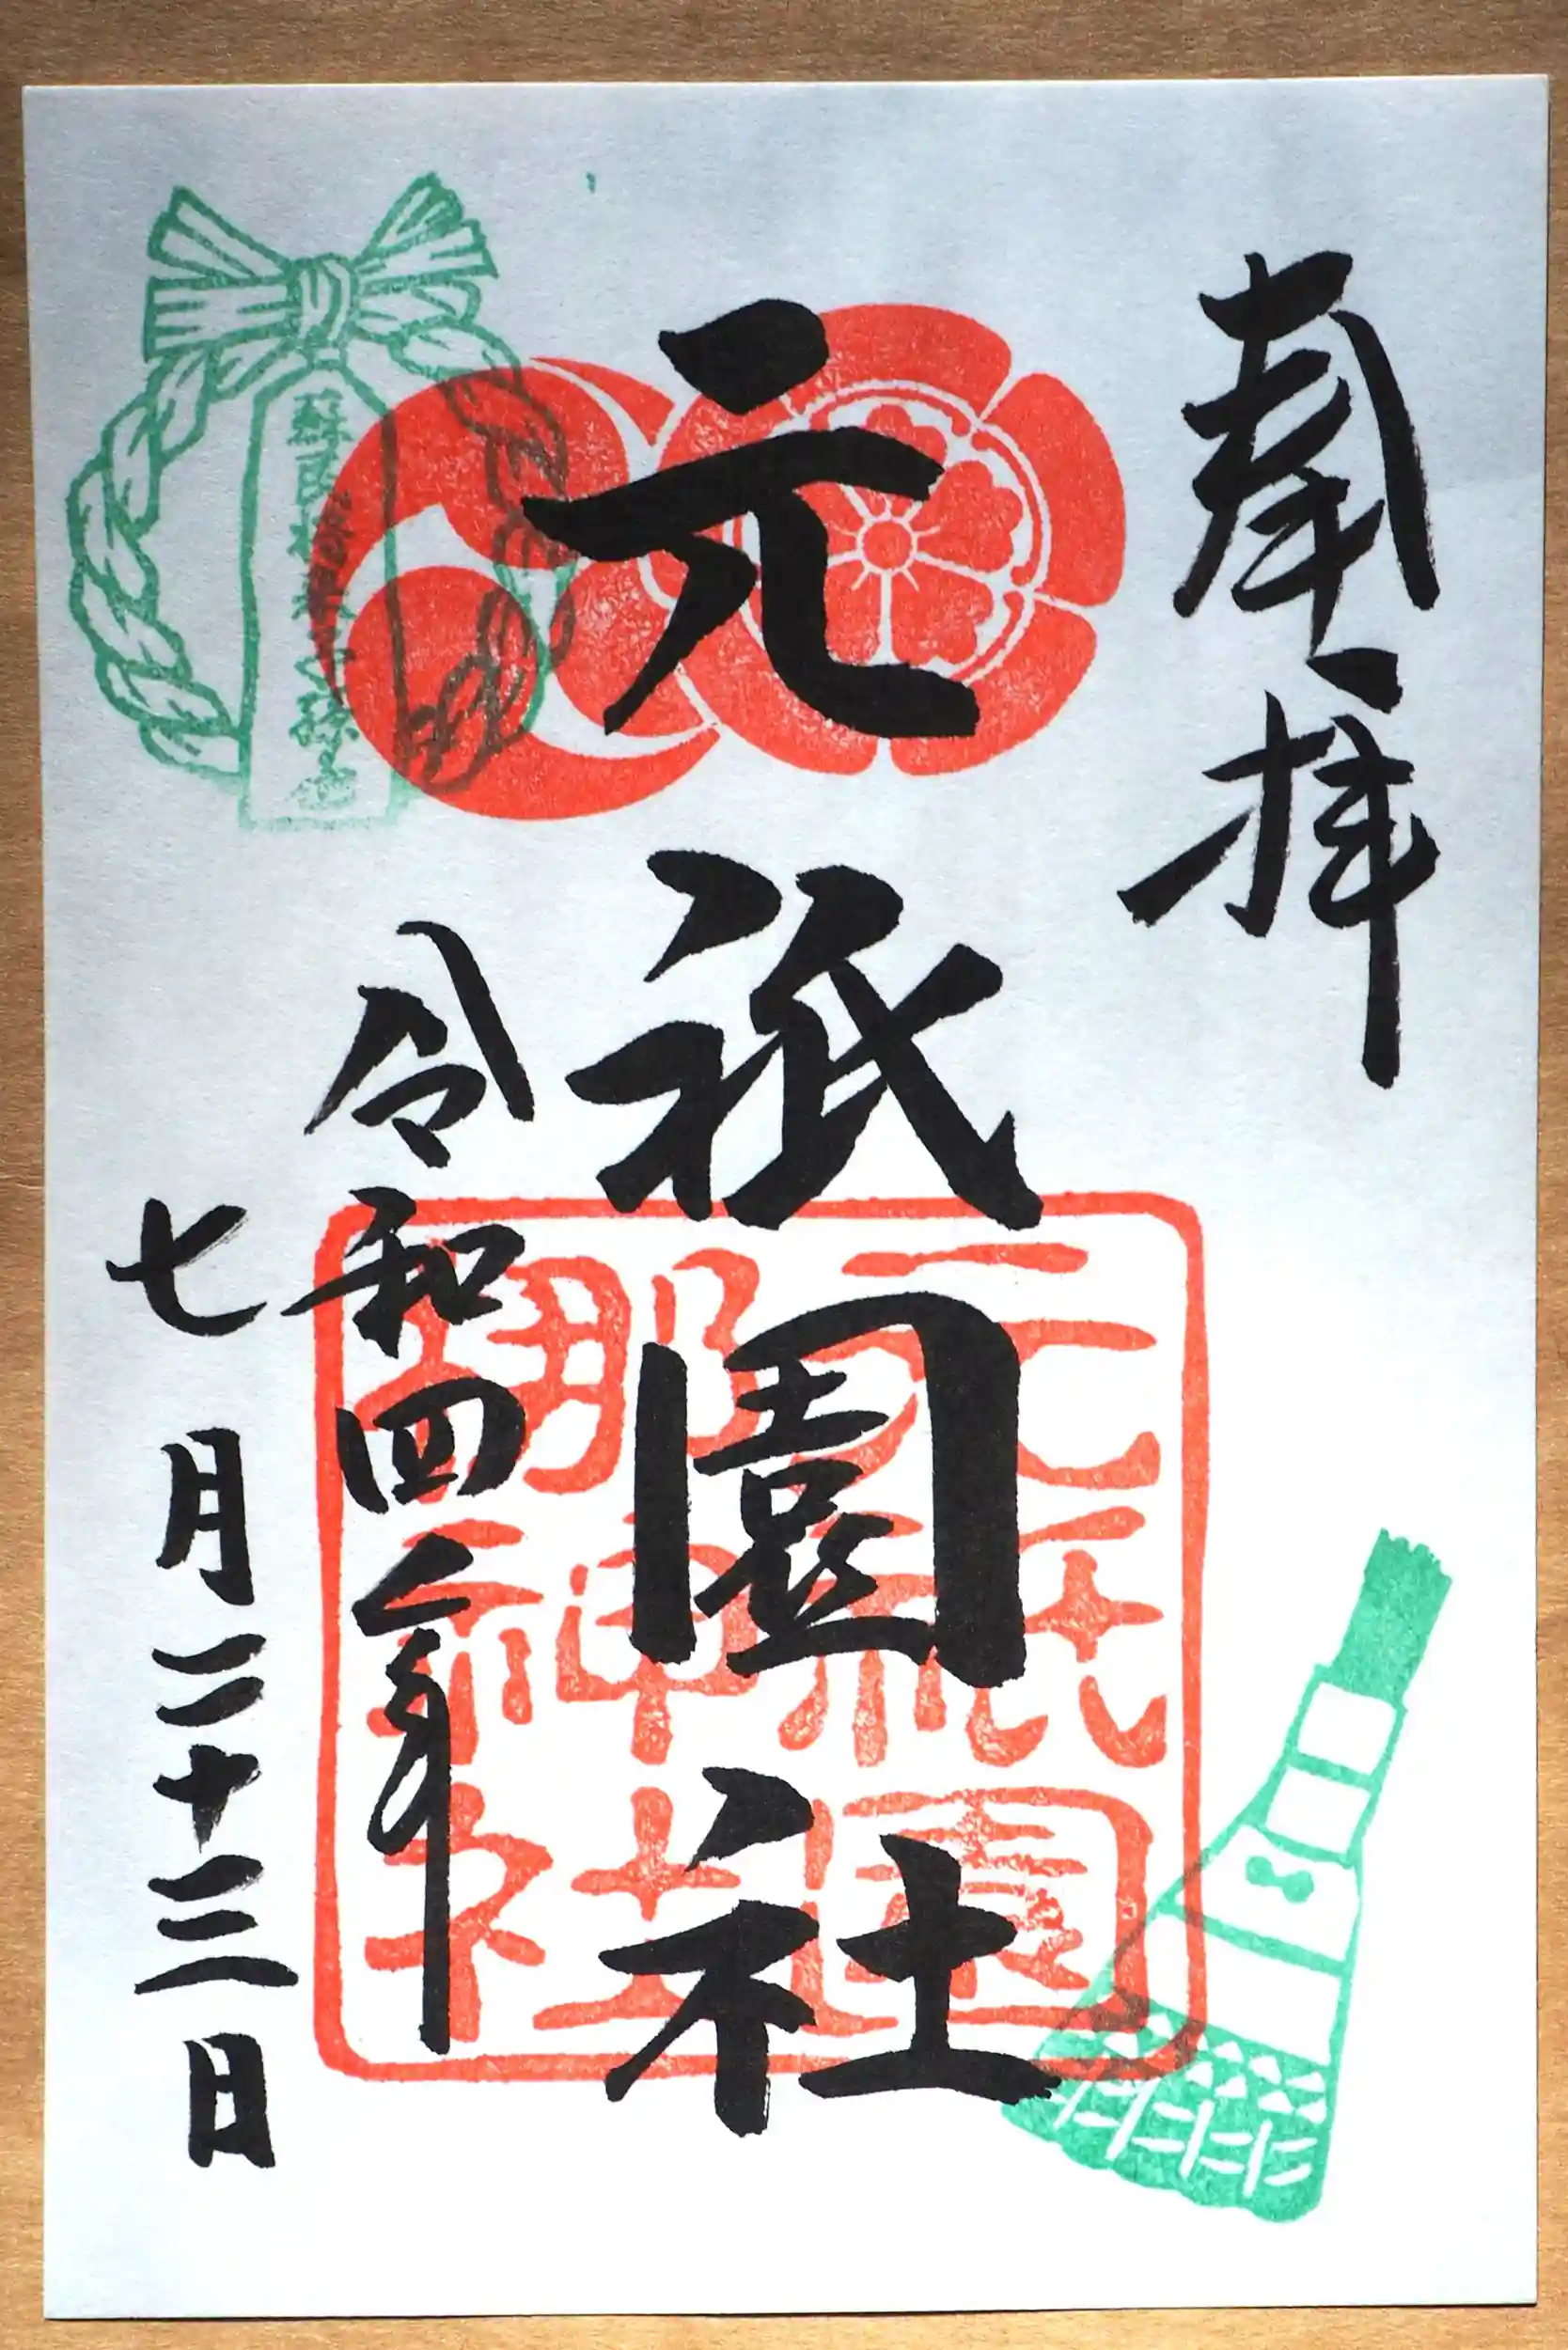 奉拝
元祇園社
元祇園
梛神社
令和四年
七月二十三日
蘇民将来之子孫也